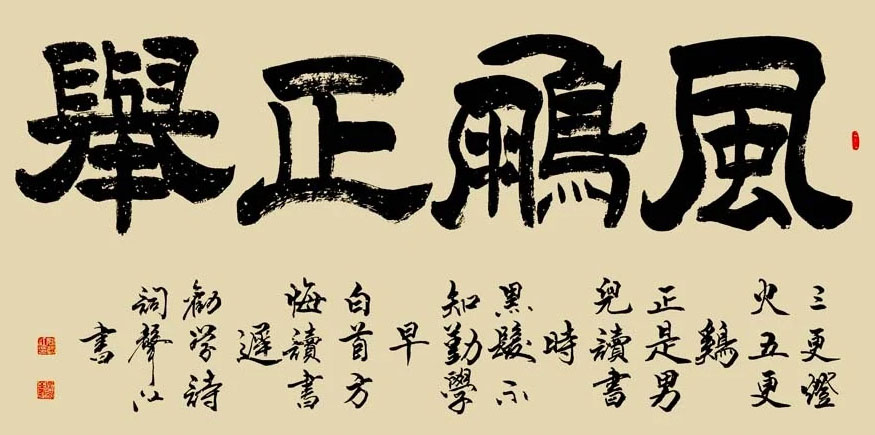 風鵬正舉
三更燈
火五更
鷄
正是男
兒讀書
時
黑髮不
知勤學
早
白首方
悔讀書
遲
勸學詩
詞聲江
書